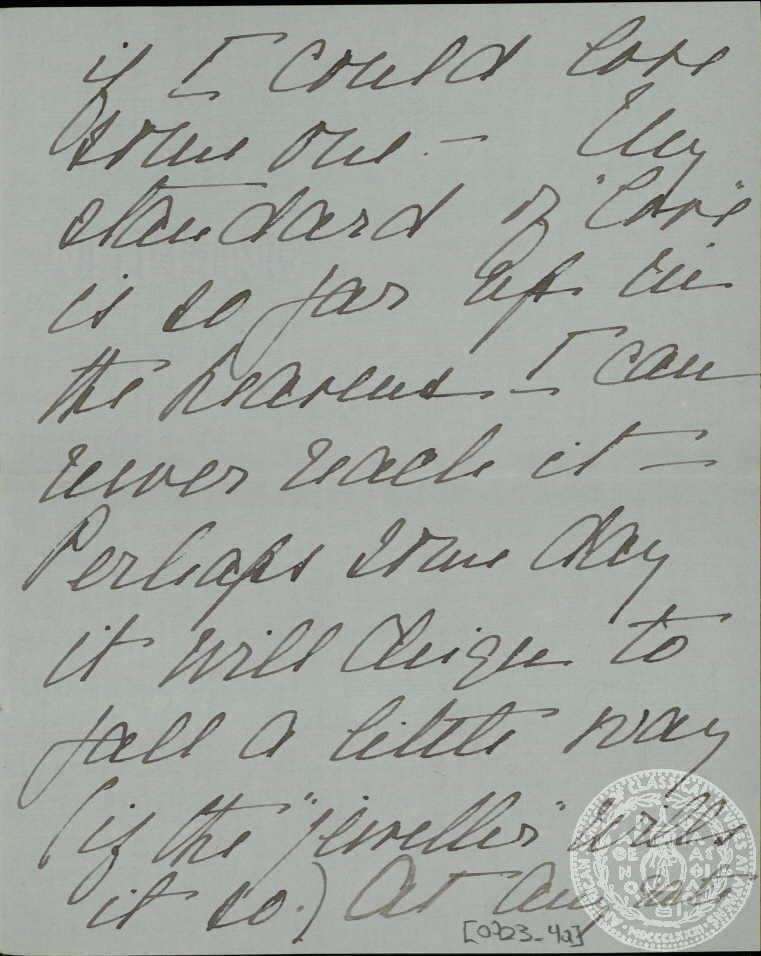 if I could love
some one. — My
standard of "love"
is so far up in
the heavens I can
never reach it —
Perhaps some day
it will deign to
fall a little way
(if the "jeweller" wills
it so.) At any rate
[0723_4a]